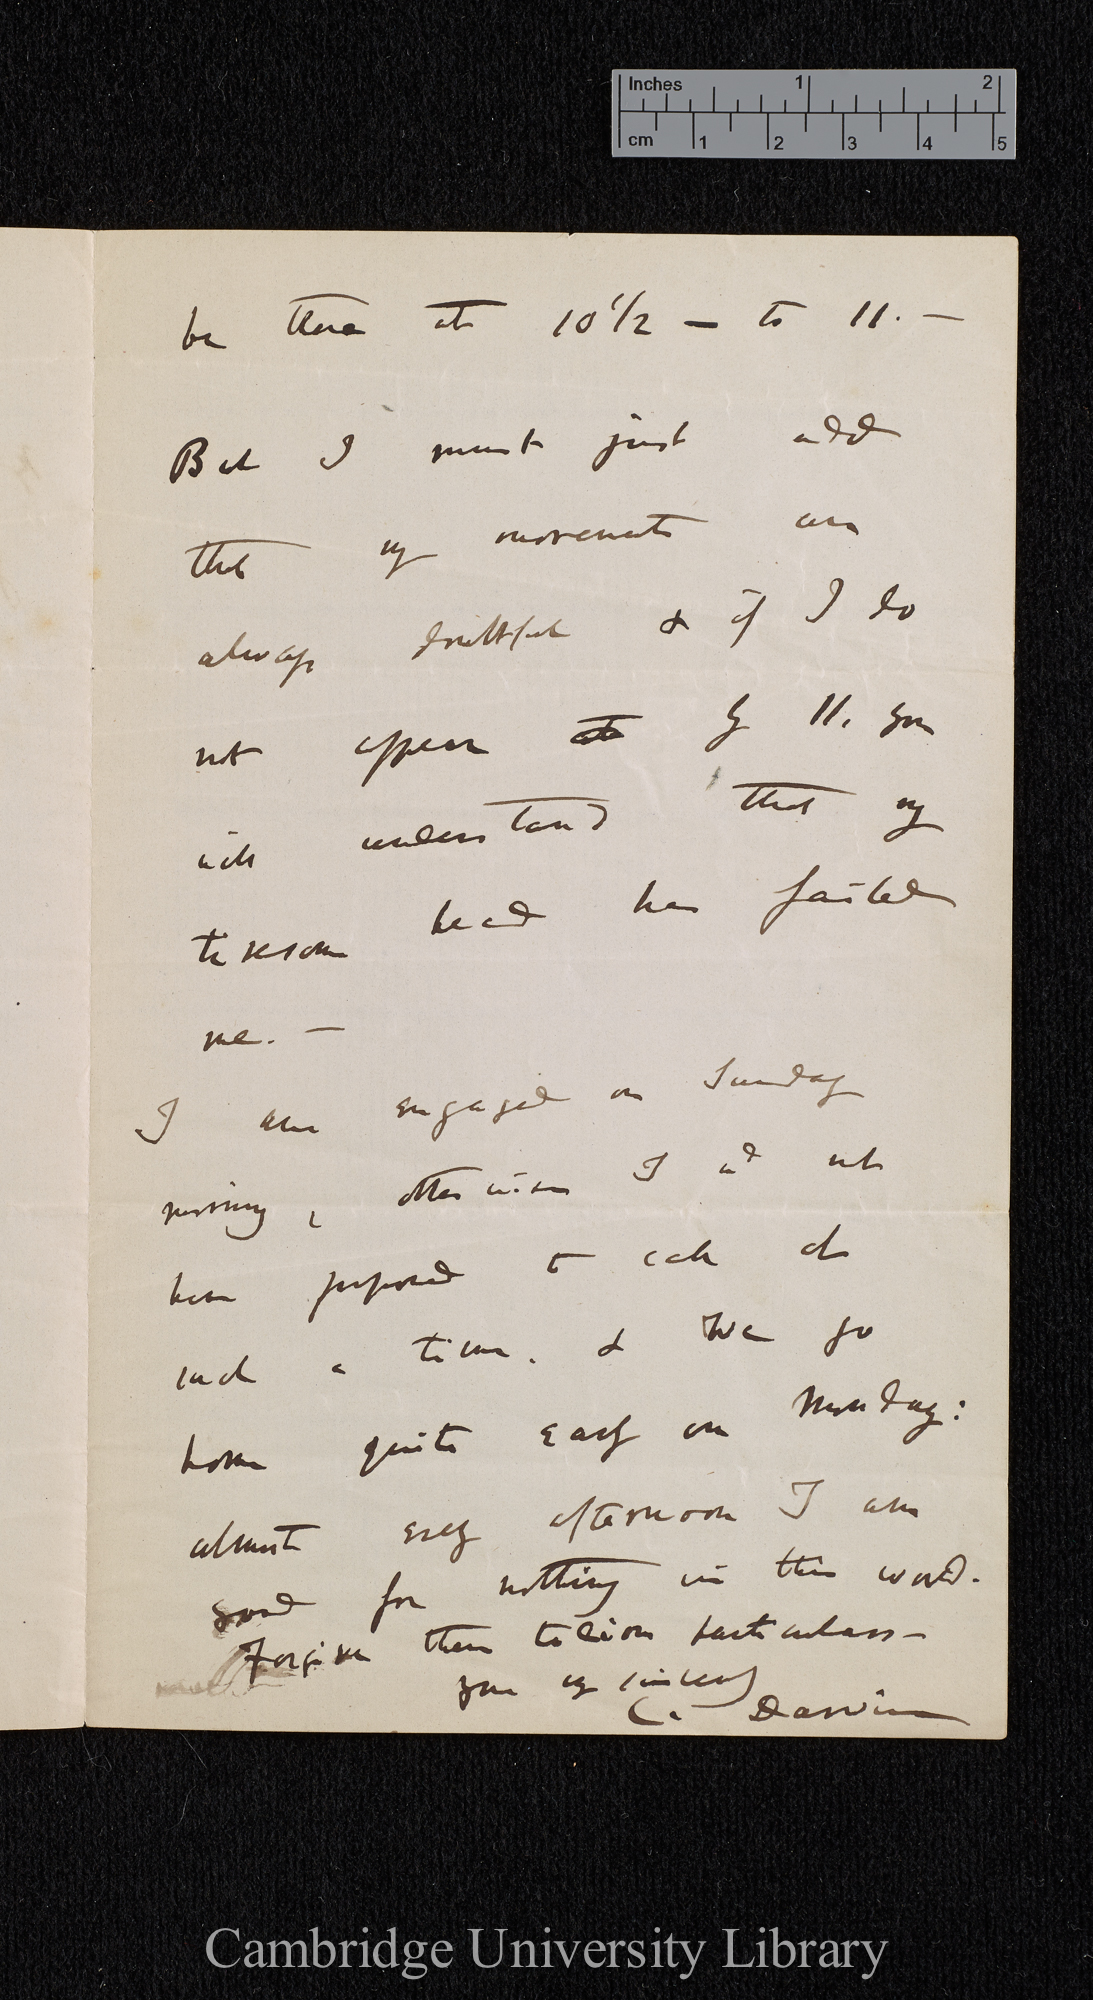 Inches 1 2
cm 1 2 3 4 5
be there at 10 1/2 — to 11. —
But I must just add
that my movements are
always doubtful & if I do
not appear at by 11. you
will understand that my
tiresome head has failed
me. —
I am engaged on Sunday
morning, otherwise I wd not
have proposed to call at
such a time. & we go
home quite early on Monday:
almost every afternoon I am
good for nothing in this world.
Forgive these tedious particulars —
yours very sincerely
C. Darwin
Cambridge University Library